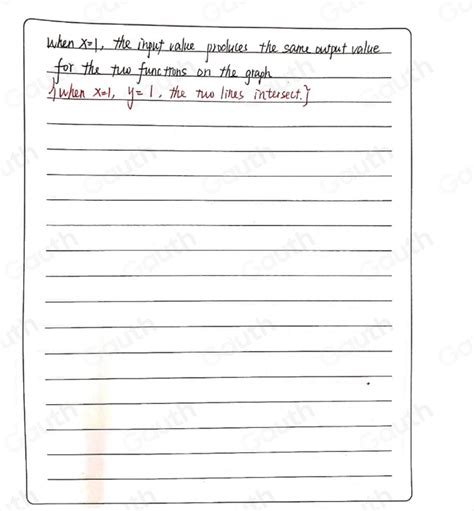 when x=1, the input value produces the same output value
for the two functions on the graph
{when x=1, y=1, the two lines intersect.}
Gauth